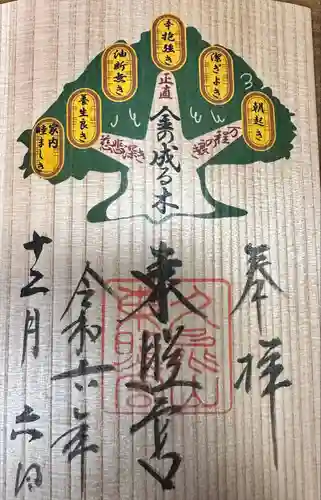 朝起き
潔ぎよき
辛抱強き
油断無き
養生良き
家内睦ましき
正直
慈悲深き
金の成る木
奉拝
東照宮
久能山東照宮
令和六年
十二月